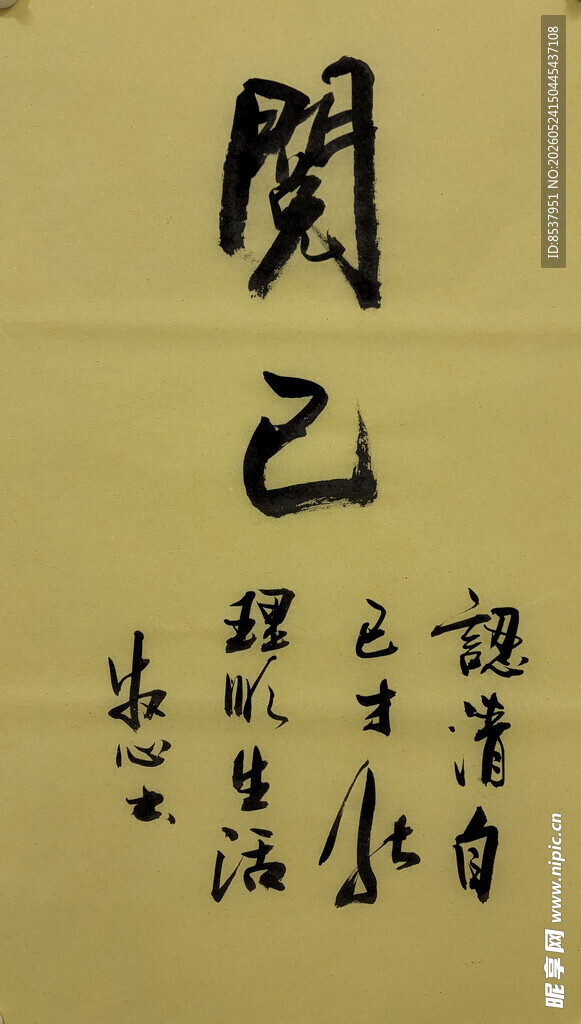 閱己
認清自
己才能
理順生活
牧心书
ID:8537951 NO:20260524150445437108
昵享网 www.nipic.cn